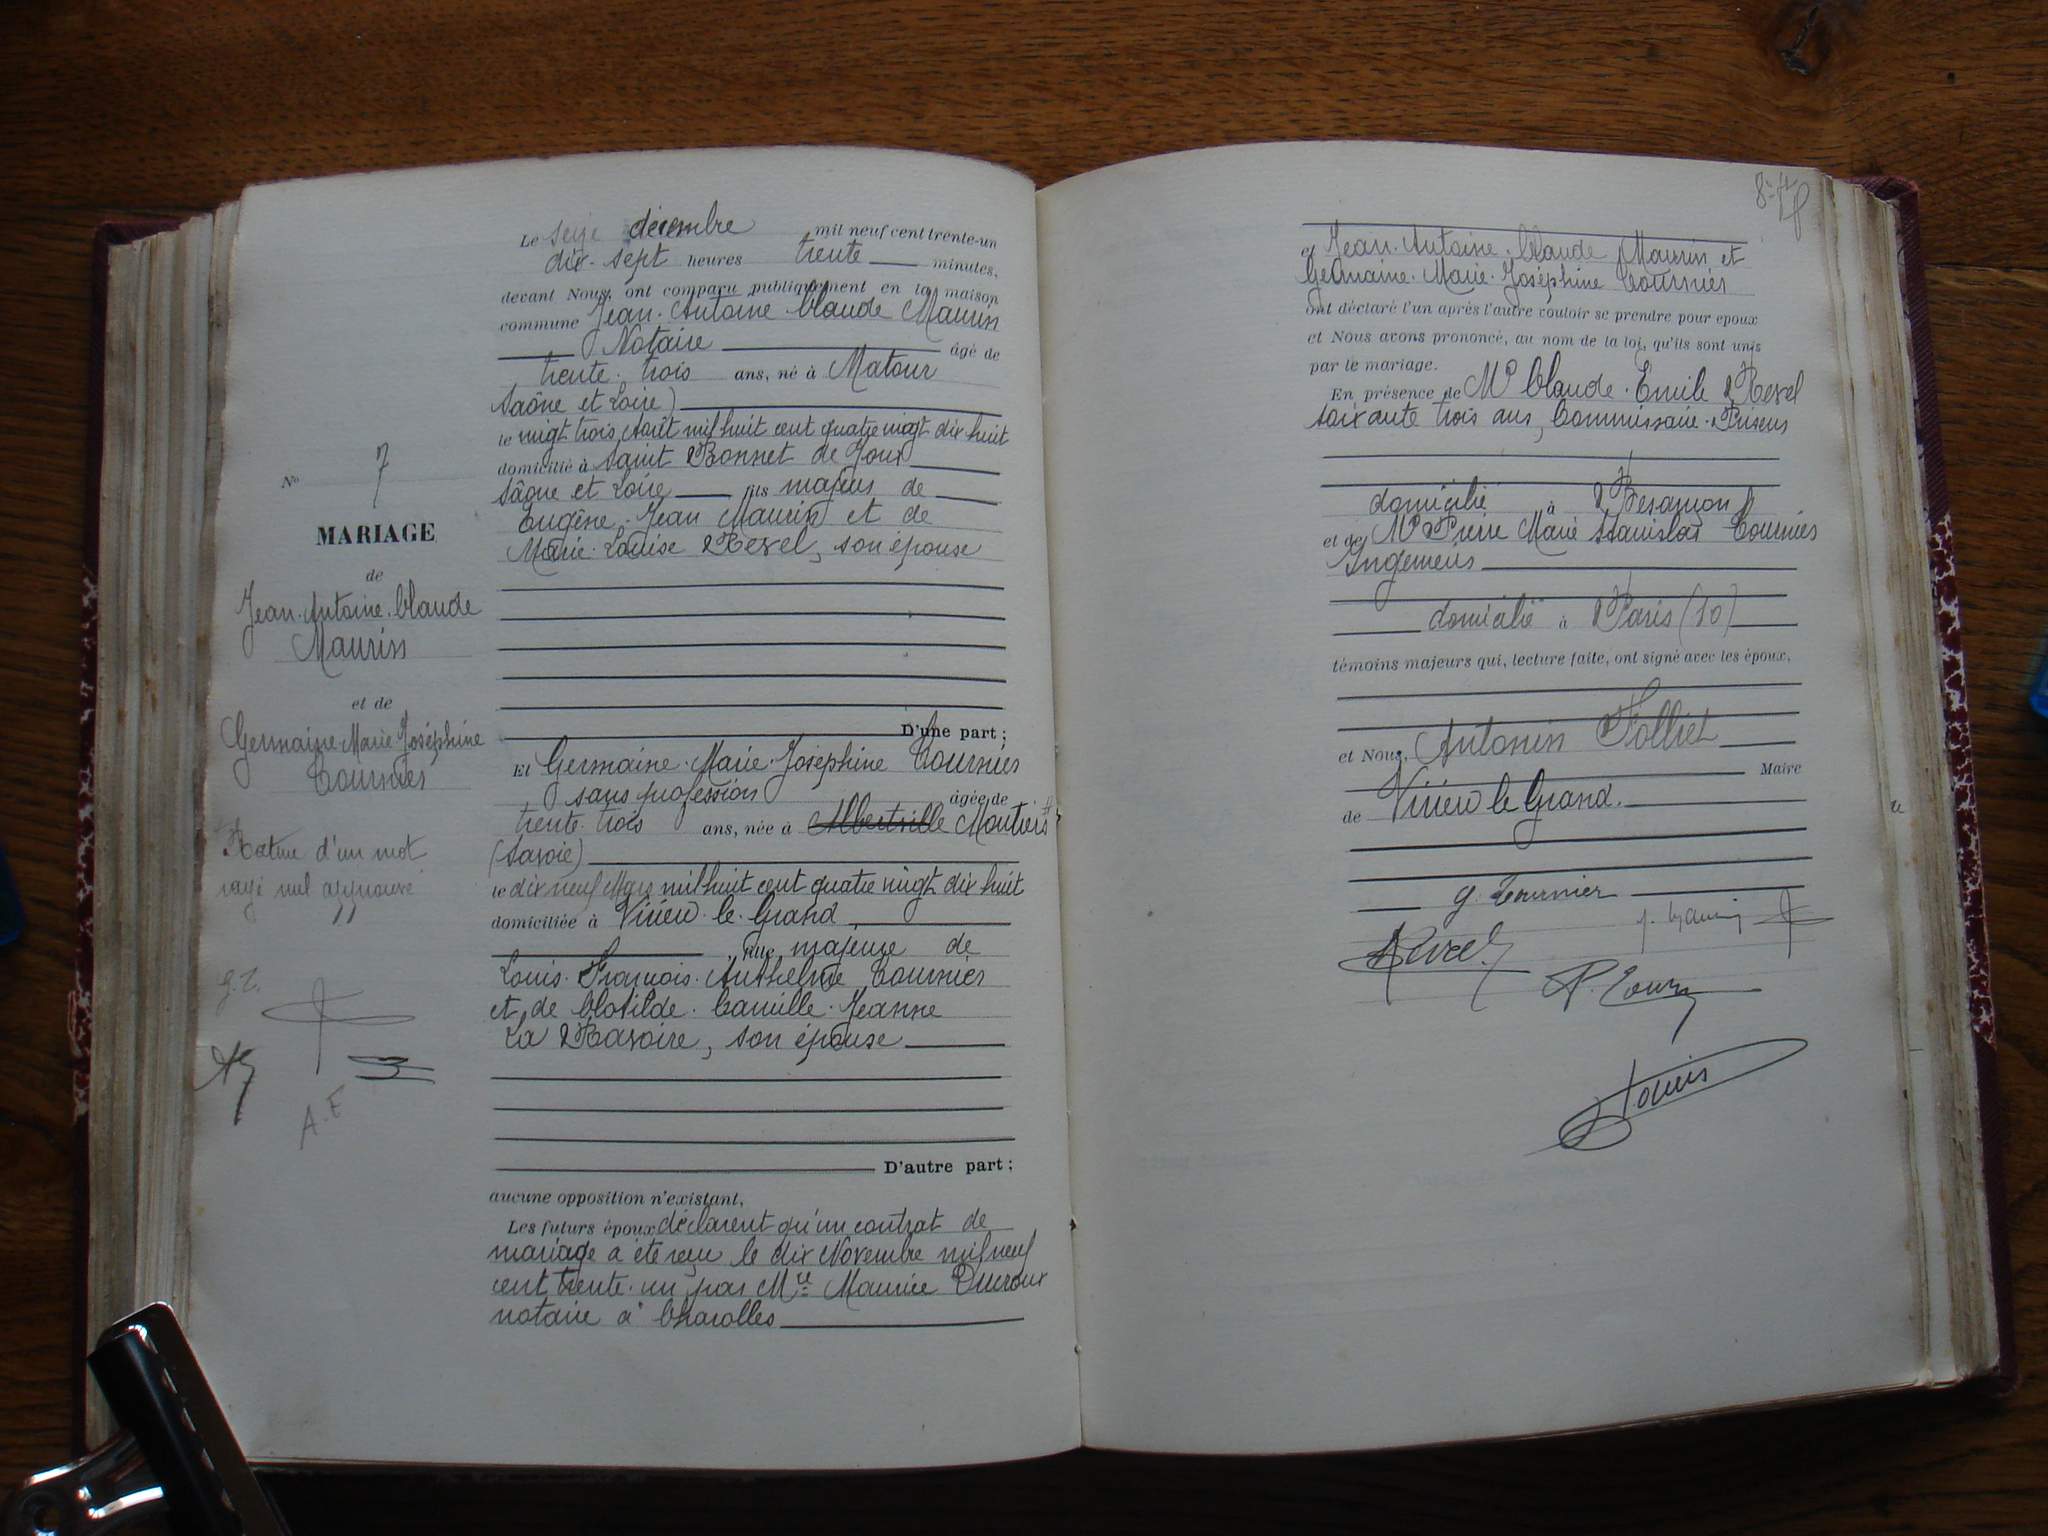 Le seize décembre mil neuf cent trente-un
dix-sept heures trente minutes,
devant Nous, ont comparu publiquement en la maison
commune Jean-Antoine-Claude Maurin
Notaire âgé de
trente-trois ans, né à Matour
Saône et Loire)
le vingt trois Août mil huit cent quatre vingt dix huit
domicilié à Saint Bonnet de Joux
Saône et Loire fils majeur de
Eugène-Jean Maurin et de
Marie-Louise Revel, son épouse
D'une part ;
Et Germaine-Marie-Joséphine Tournier
sans profession âgée de
trente-trois ans, née à Albertville Moutiers
(Savoie)
le dix neuf Mars mil huit cent quatre vingt dix huit
domiciliée à Virieu-le-Grand
fille majeure de
Louis-François-Anthelme Tournier
et de Clotilde-Camille-Jeanne
La Ravoire, son épouse
D'autre part ;
aucune opposition n'existant,
Les futurs époux déclarent qu'un contrat de
mariage a été reçu le dix Novembre mil neuf
cent trente-un par Me Maurice Ducroux
notaire à Charolles
No 7
MARIAGE
de
Jean-Antoine-Claude
Maurin
et de
Germaine-Marie-Joséphine
Tournier
Rature d'un mot
rayé nul approuvé
g.T.
A.F
et Jean-Antoine-Claude Maurin et
Germaine-Marie-Joséphine Tournier
ont déclaré l'un après l'autre vouloir se prendre pour époux
et Nous avons prononcé, au nom de la loi, qu'ils sont unis
par le mariage.
En présence de Mr Claude-Emile Revel
soixante trois ans, Commissaire-Priseur
domicilié à Besançon
et de Mr Pierre Marie Stanislas Tournier
Ingénieur
domicilié à Paris (10)
témoins majeurs qui, lecture faite, ont signé avec les époux,
et Nous, Antonin Folliet
Maire
de Virieu le Grand.
g. Tournier
J. Maurin
Revel
P. Tour